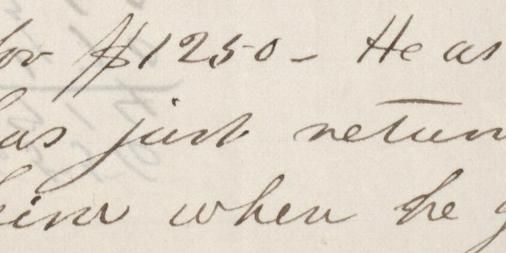 for $1250 - He as
has just return
him when he g